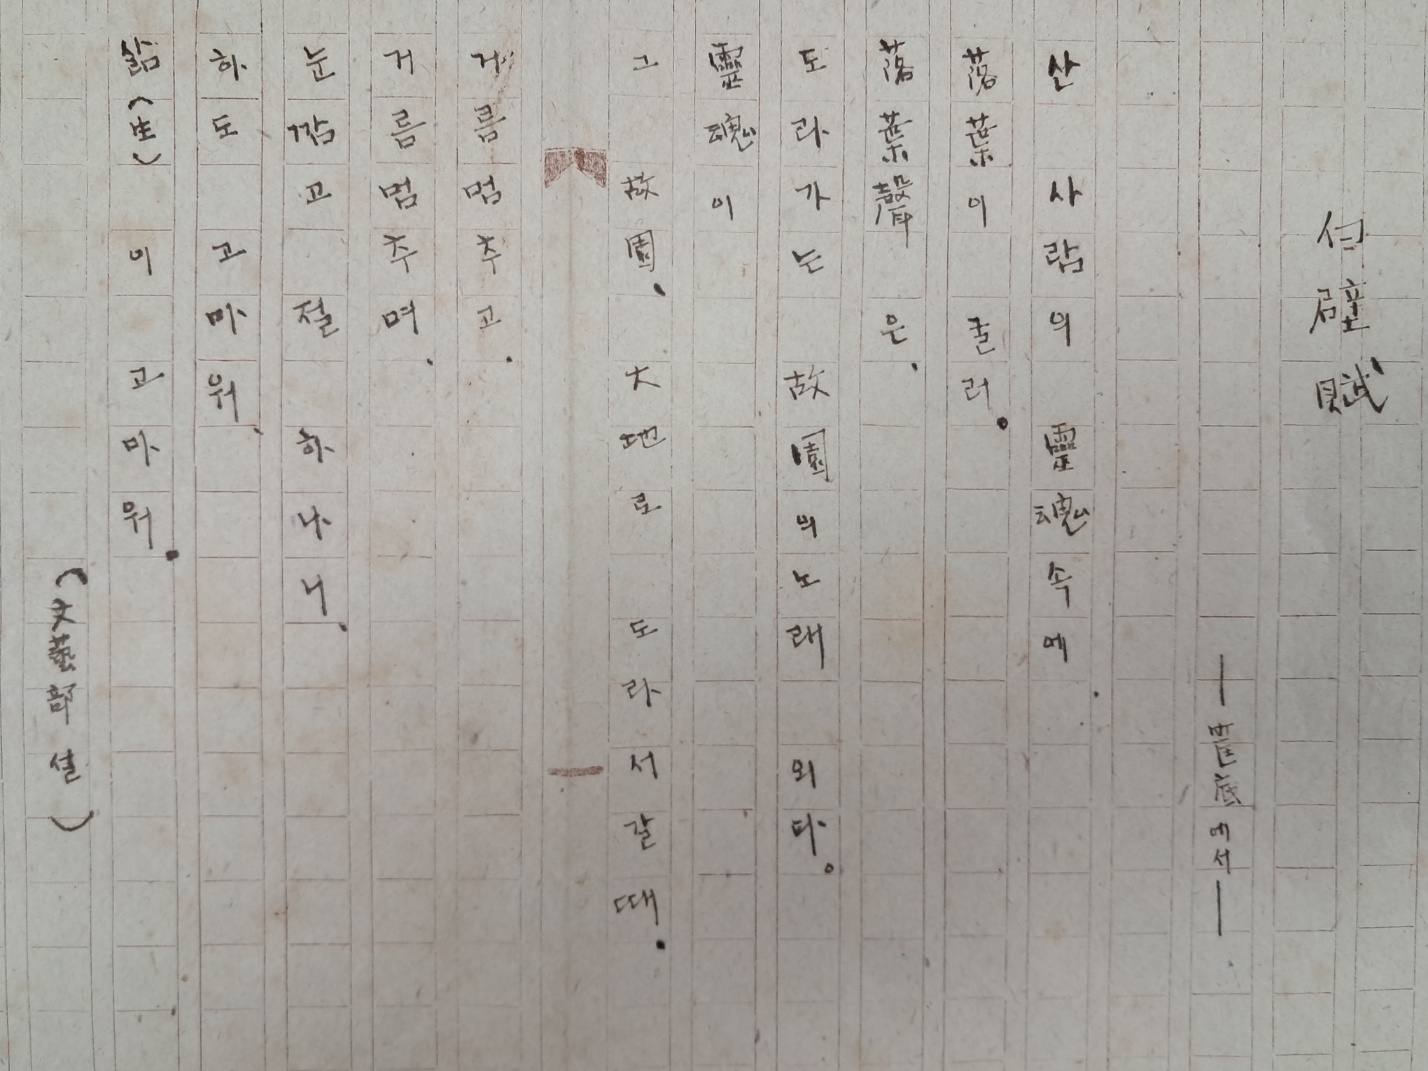 壁賦
底에서―
산 사람의 靈魂속에
落葉이 굴러.
落葉聲 은,
도라가는 故園의노래 외다。
靈魂이
그 故園、 大地로 도라서갈때.
거름멈추고.
거름멈추며.
눈깜고 절 하나니、
하도 고마워、
삶(生) 이 고마워.
(文藝部 설)